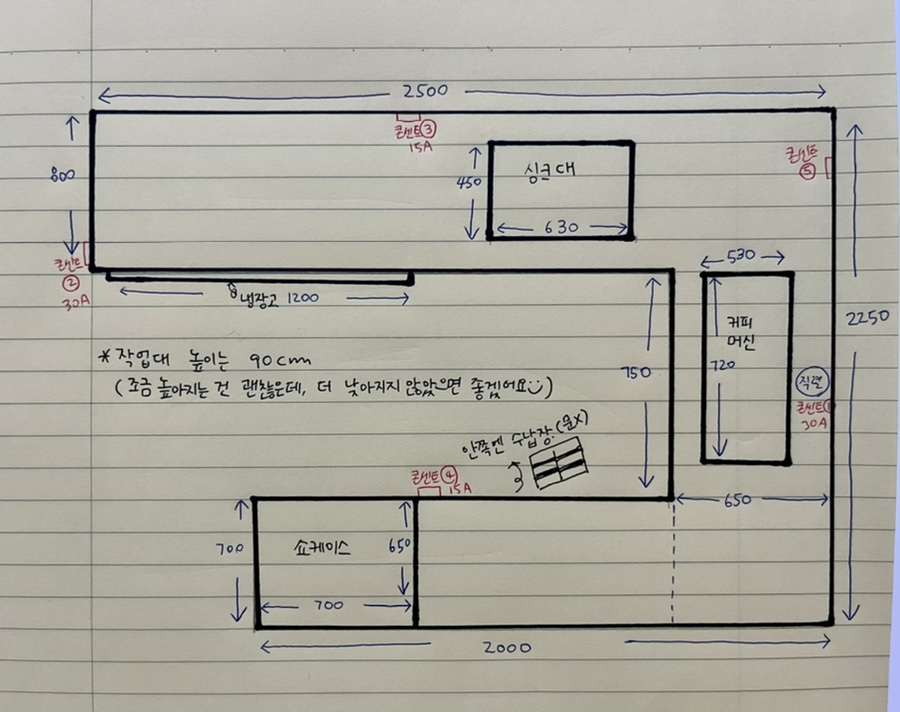 2500
콘센트 ③
15A
800
450
싱크대
630
콘센트
⑤
콘센트
②
30A
냉장고 1200
530
커피
머신
720
750
2250
* 작업대 높이는 90cm
(조금 높아지는 건 괜찮은데, 더 낮아지지 않았으면 좋겠어요)
직렬
콘센트①
30A
안쪽엔 수납장.(문X)
콘센트④
15A
650
700
쇼케이스
650
700
2000